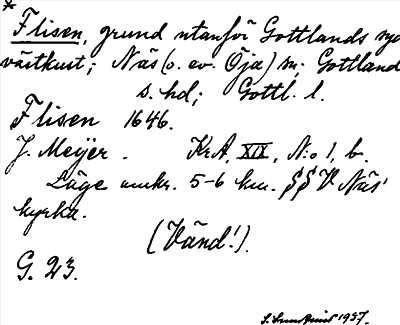 *
Flisen, grund utanför Gottlands syd
västkust; Näs (o. ev. Öja) sn; Gottland
s. hd; Gottl. l.
Flisen 1646.
J. Meijer. KrA, XIX, N:o 1, b.
Läge omkr. 5-6 km. SSV Näs'
kyrka.
(Vänd!).
G. 23.
1937.